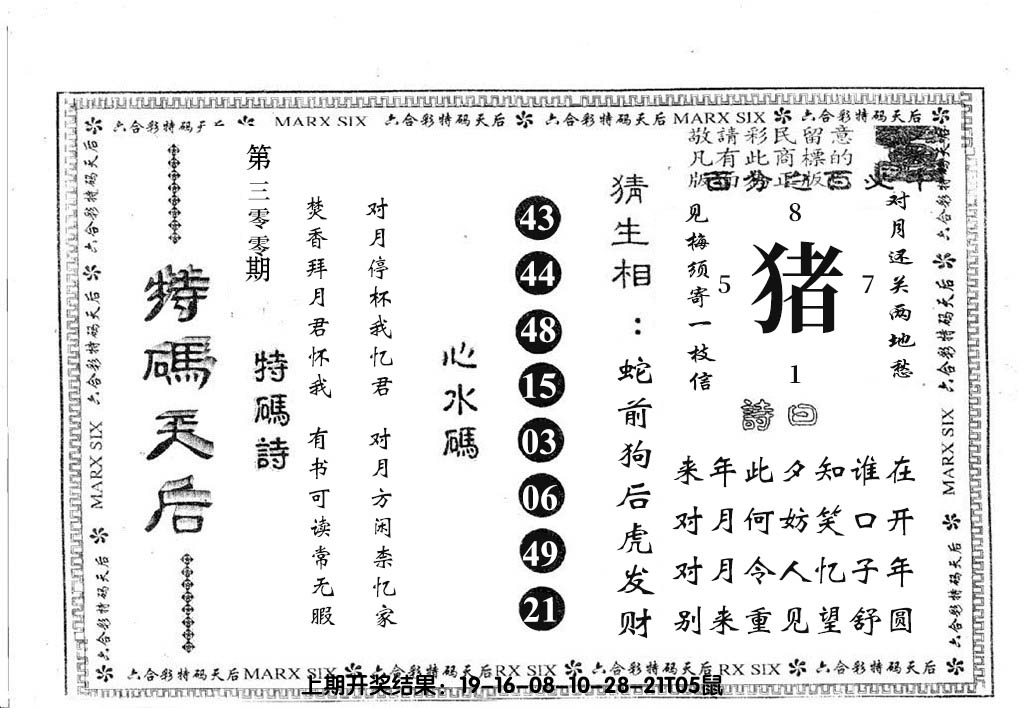 六合彩特码天后 MARX SIX 六合彩特码天后 六合彩特码天后 MARX SIX 六合彩特码天后
敬請彩民留意
凡有此商標的
版面為正版
对月还关两地愁
8
5 猪 7
1
见梅须寄一枝信
詩曰
来年此夕知谁在
对月何妨笑口开
对月令人忆子年
别来重见望舒圆
猜生相：蛇前狗后虎发财
43
44
48
15
03
06
49
21
心水碼
对月停杯我忆君 对月方闲柰忆家
焚香拜月君怀我 有书可读常无暇
特碼詩
第三零零期
特碼天后
六合彩特码天后 六合彩特码天后 MARX SIX 六合彩特码天后
六合彩特码天后 六合彩特码天后 MARX SIX 六合彩特码天后
六合彩特码天后 MARX SIX 六合彩特码天后 RX SIX 六合彩特码天后 RX SIX 六合彩特码天后
上期开奖结果：19-16-08-10-28-21T05鼠